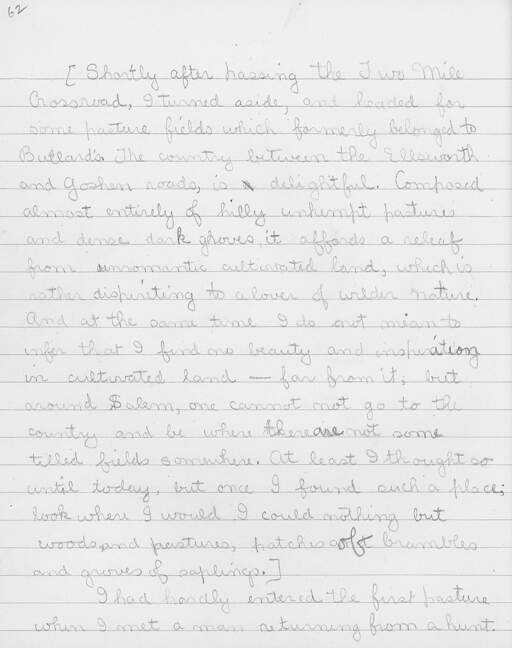 62
[ Shortly after passing the Two Mile
Crossroad, I turned aside, and headed for
some pasture fields which formerly belonged to
Bullard's. The country between the Ellsworth
and Goshen roads, is delightful. Composed
almost entirely of hilly unkempt pastures
and dense dark groves, it affords a releaf
from unromantic cultivated land, which is
rather dispireting to a lover of wilder nature.
And at the same time I do not mean to
infer that I find no beauty and inspiration
in cultivated land — far from it; but
around Salem, one cannot not go to the
country and be where there are not some
tilled fields somewhere. At least I thought so
until today, but once I found such a place;
look where I would I could nothing but
woods and pastures, patches of brambles
and groves of saplings. ]
I had hardly entered the first pasture
when I met a man returning from a hunt.